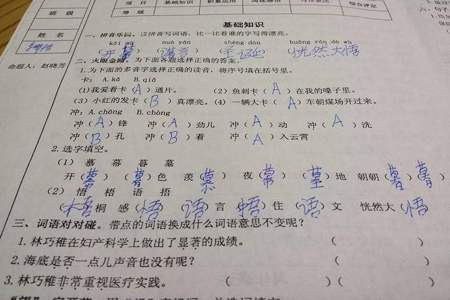 项目 基础知识
综合评定
班级
等级
姓名
命题人:赵晓芳
基础知识
一、拼音乐园。读拼音写词语,比一比看谁的字写得漂亮。
kāi mù shèng dàn huǎng rán dà wù
(开幕) (圣诞) (恍然大悟)
二、火眼金睛。为下面各题选择正确的答案。
1.为下面的多音字选择正确的读音,将序号填在括号里。
卡:A.kǎ B.qiǎ
(1)我爱看卡(A)通片。 (2)鱼刺卡( )在我的嗓子里。
(3)小红的发卡(B)真漂亮。(4)一辆大卡(A)车朝煤场开过来。
冲:A.chōng B.chòng
冲(A)锋 冲(A)劲儿 冲(A)动 冲(A)洗
冲(B)孔 冲(B)着 冲(A)入云霄
2.选字填空。
(1) 慕 幕 暮 墓
开( ) ( )色 羡( ) 夜( ) ( )地 朝朝( )( )
(2) 悟 梧 语 捂
(梧)桐 感(悟) (语)言 ( )住 (语)文 恍然大(悟)
三、词语对对碰。带点的词语换成什么词语意思不变呢?
1.林巧稚在妇产科学上做出了显著的成绩。 ( )
2.海底是否一点儿声音也没有呢? ( )
3.林巧稚非常重视医疗实践。 ( ) ( )